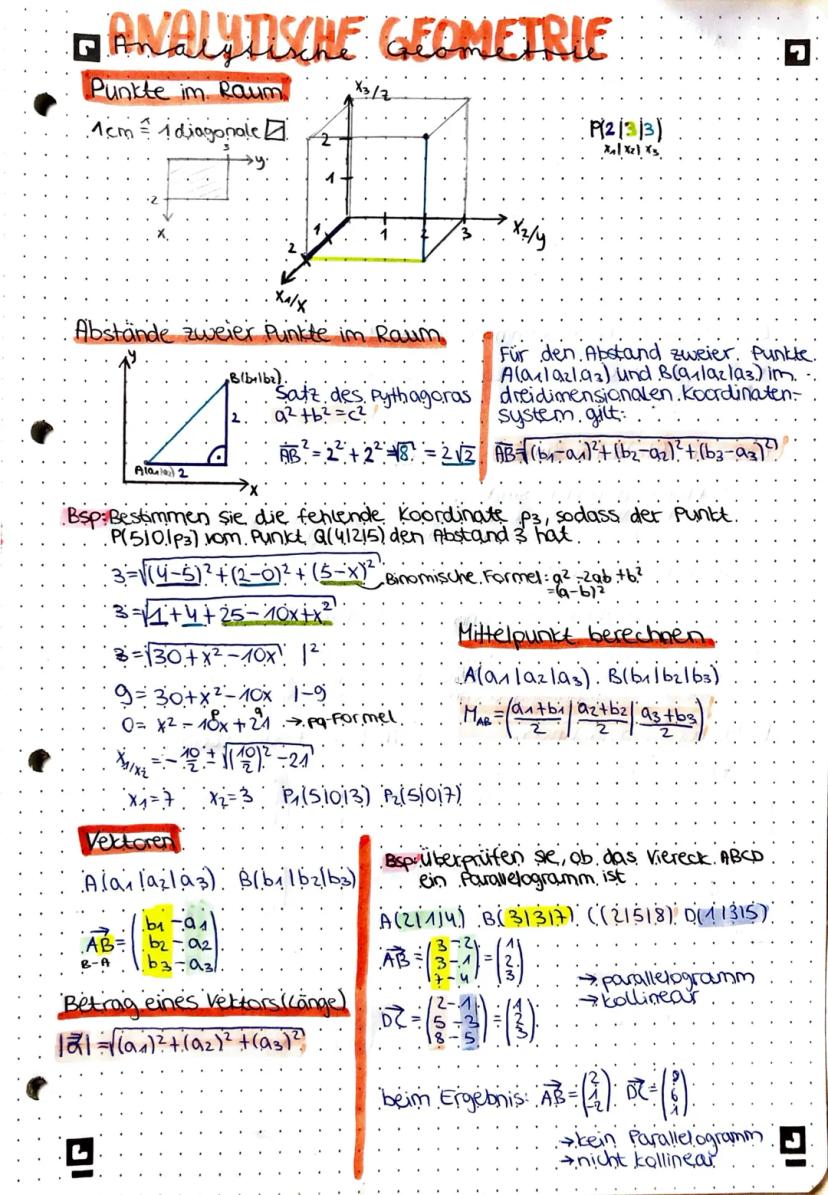 ANALYTISCHE GEOMETRIE
Analytische Geometrie
Punkte im Raum
1cm ≙ 1 diagonale
3
y
2
x
x3/z
2
1
1
2
1
2
3
x2/y
x1/x
P(2|3|3)
x1|x2|x3
Abstände zweier Punkte im Raum
y
B(b1|b2)
2
2
x
Satz des Pythagoras
a²+b²=c²
AB² = 2² + 2² = √8 = 2√2
Für den Abstand zweier Punkte
A(a1|a2|a3) und B(a1|a2|a3) im
dreidimensionalen Koordinaten-
system gilt:
AB=√(b1-a1)²+(b2-a2)²+(b3-a3)²
Bsp: Bestimmen sie die fehlende Koordinate p3, sodass der Punkt
P(5|0|p3) vom Punkt Q(4|2|5) den Abstand 3 hat.
3=√(4-5)²+(2-0)²+(5-x)²
Binomische Formel: a²-2ab+b²
=(a-b)²
3=√1+4+25-10x+x²
3=√30+x²-10x |²
9=30+x²-10x |-9
0= x² - 10x + 21 → pq-Formel
p q
x1/x2 = -10/2 ± √(10/2)² - 21
x1=7 x2=3 P1(5|0|3) P2(5|0|7)
Mittelpunkt berechnen
A(a1|a2|a3) B(b1|b2|b3)
MAB = (a1+b1/2 | a2+b2/2 | a3+b3/2)
Vektoren
A(a1|a2|a3) B(b1|b2|b3)
AB = (b1-a1
b2-a2
b3-a3)
B-A
Betrag eines Vektors(Länge)
|a| = √(a1)²+(a2)²+(a3)²
Bsp: Überprüfen sie, ob das Viereck ABCD
ein Parallelogramm ist
A(2|1|4) B(3|3|7) C(2|5|8) D(1|3|5)
AB = (3-2
3-1
7-4) = (1
2
3)
→ parallelogramm
→ kollinear
DC = (2-1
5-3
8-5) = (1
2
3)
beim Ergebnis: AB = (2
1
-2) DC = (
6
1)
→ kein Parallelogramm
→ nicht kollinear